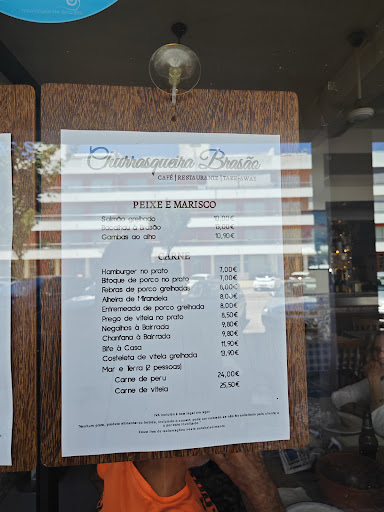 Churrasqueira Brasão
CAFÉ | RESTAURANTE | TAKE-AWAY
PEIXE E MARISCO
Salmão grelhado 10,00€
Bacalhau à Brasão
Gambas ao alho 10,90€
CARNE
Hamburger no prato 7,00€
Bitoque de porco no prato 7,00€
Febras de porco grelhadas
Alheira de Mirandela 8,00€
Entremeada de porco grelhada 8,00€
Prego de vitela no prato 8,50€
Negalhos à Bairrada 9,80€
Chanfana à Bairrada 9,80€
Bife à Casa 11,90€
Costeleta de vitela grelhada 13,90€
Mar e Terra (2 pessoas)
Carne de peru 24,00€
Carne de vitela 25,50€